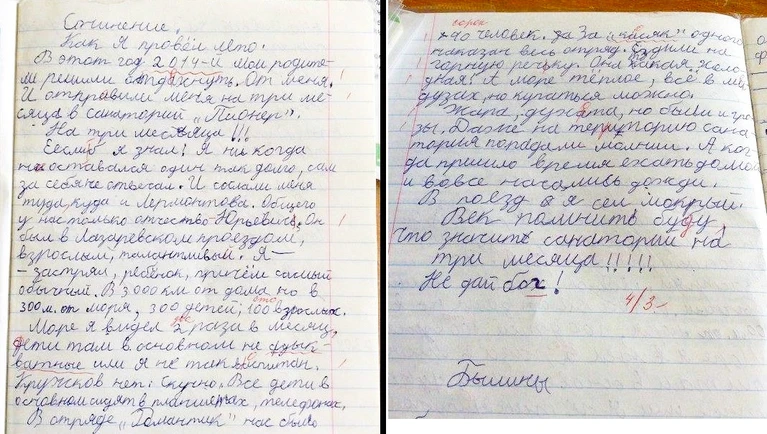 Сочинение.
Как я провёл лето.
В этот год 2014-й мои родите-
ли решили отдахнуть. От меня.
И отправили меня на три ме-
сяца в санаторий „Пионер".
На три месяца!!!
Еслиб я знал! Я ни когда
не оставался один так долго, сам
за себя не отвечал. И сослали меня
туда, куда и Лермонтова. Общего
у нас только отчество Юрьевич. Он
был в Лазаревском проездом,
взрослый, талантливый. Я —
— застрял, ребёнок, причём самый
обычный. В 3000 км от дома но в
300 м. от моря, 300 детей, 100 взрослых.
сто
Море я видел 2 раза в месяц,
два
дети там в основном не адык-
ватные или я не так воспитан.
Кружков нет. Скучно. Все дети в
основном сидят в планшетах, телефонах.
В отряде „Романтик" нас было
сорок
40 человек. За „касяк" одного
наказан весь отряд. Ездили на
горную речьку. Она такая холо-
дная! А море тёплое, всё в ме-
дузах, но купаться можно.
Жара, духата, но были и гро-
зы. Даже на территорию сана-
тория попадали молнии. А ког-
да пришло время ехать домой
и вовсе начались дожди.
В поезд я сел мокрый.
Век помнить буду,
что значить санаторий на
три месяца!!!!!
Не дай бог!
4/3-
Былины